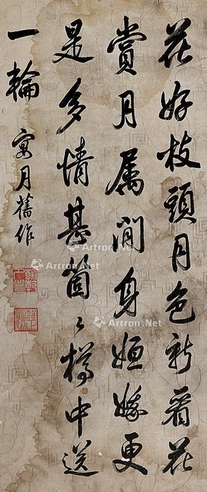 花好枝頭月色新看花
賞月属閒身姮娥更
是多情甚箇〻樽中送
一輪
宴月舊作
Artron.Net
Artron.Net
Artron.Net
Artron.Net